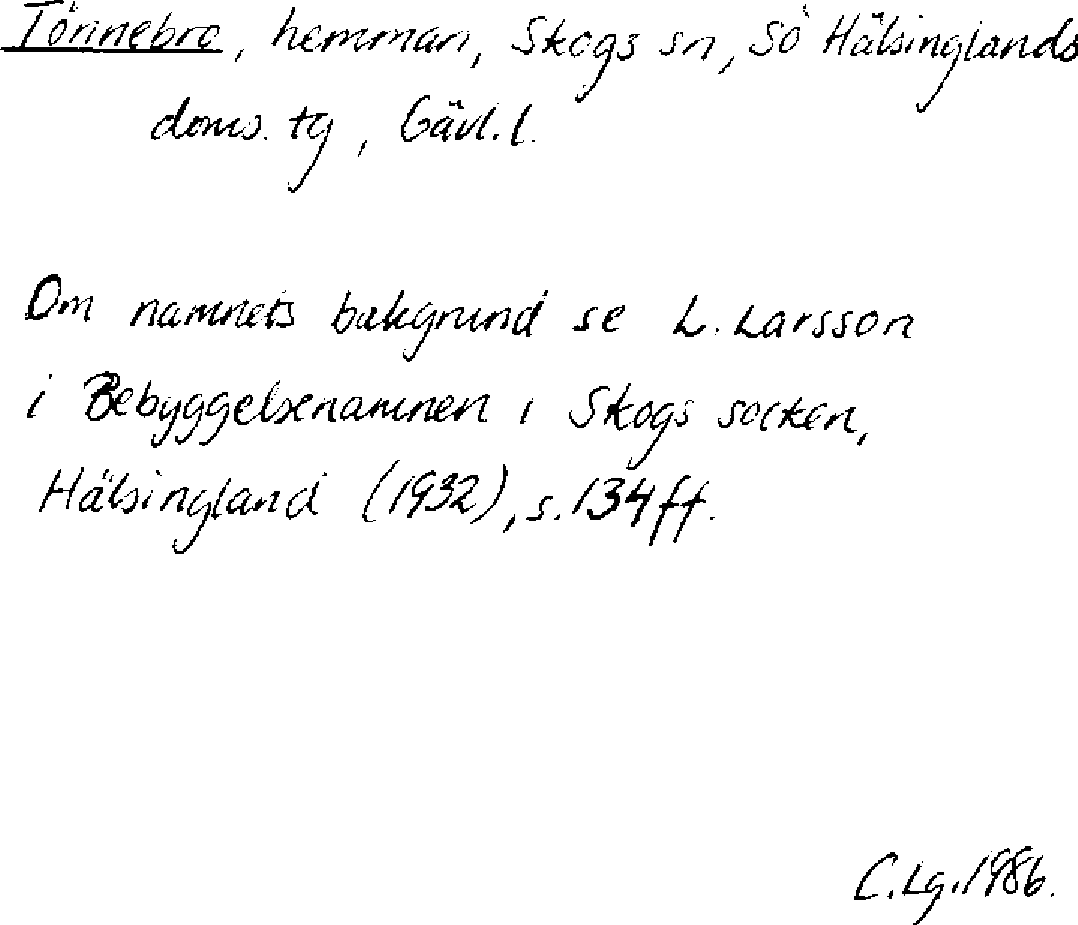 Tönnebro, hemman, Skogs sn, Sö Hälsinglands
doms. tg, Gävl. l.
Om namnets bakgrund se L. Larsson
i Bebyggelsenamnen i Skogs socken,
Hälsingland (1932), s. 134 ff.
C. Lg. 1986.